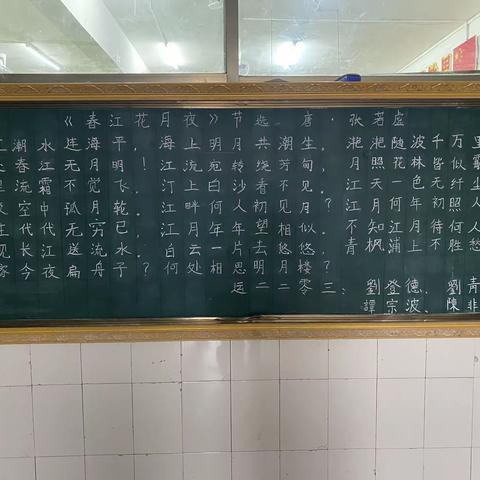 《春江花月夜》节选 唐·张若虚
江潮水连海平，海上明月共潮生。滟滟随波千万里
处春江无月明！江流宛转绕芳甸，月照花林皆似霰
里流霜不觉飞，汀上白沙看不见。江天一色无纤尘
空中孤月轮？江畔何人初见月？江月何年初照人
生代代无穷已，江月年年望相似。不知江月待何人
见长江送流水。白云一片去悠悠，青枫浦上不胜愁
家今夜扁舟子？何处相思明月楼？
二二零三：劉登德、劉青
譚宗波、陳非